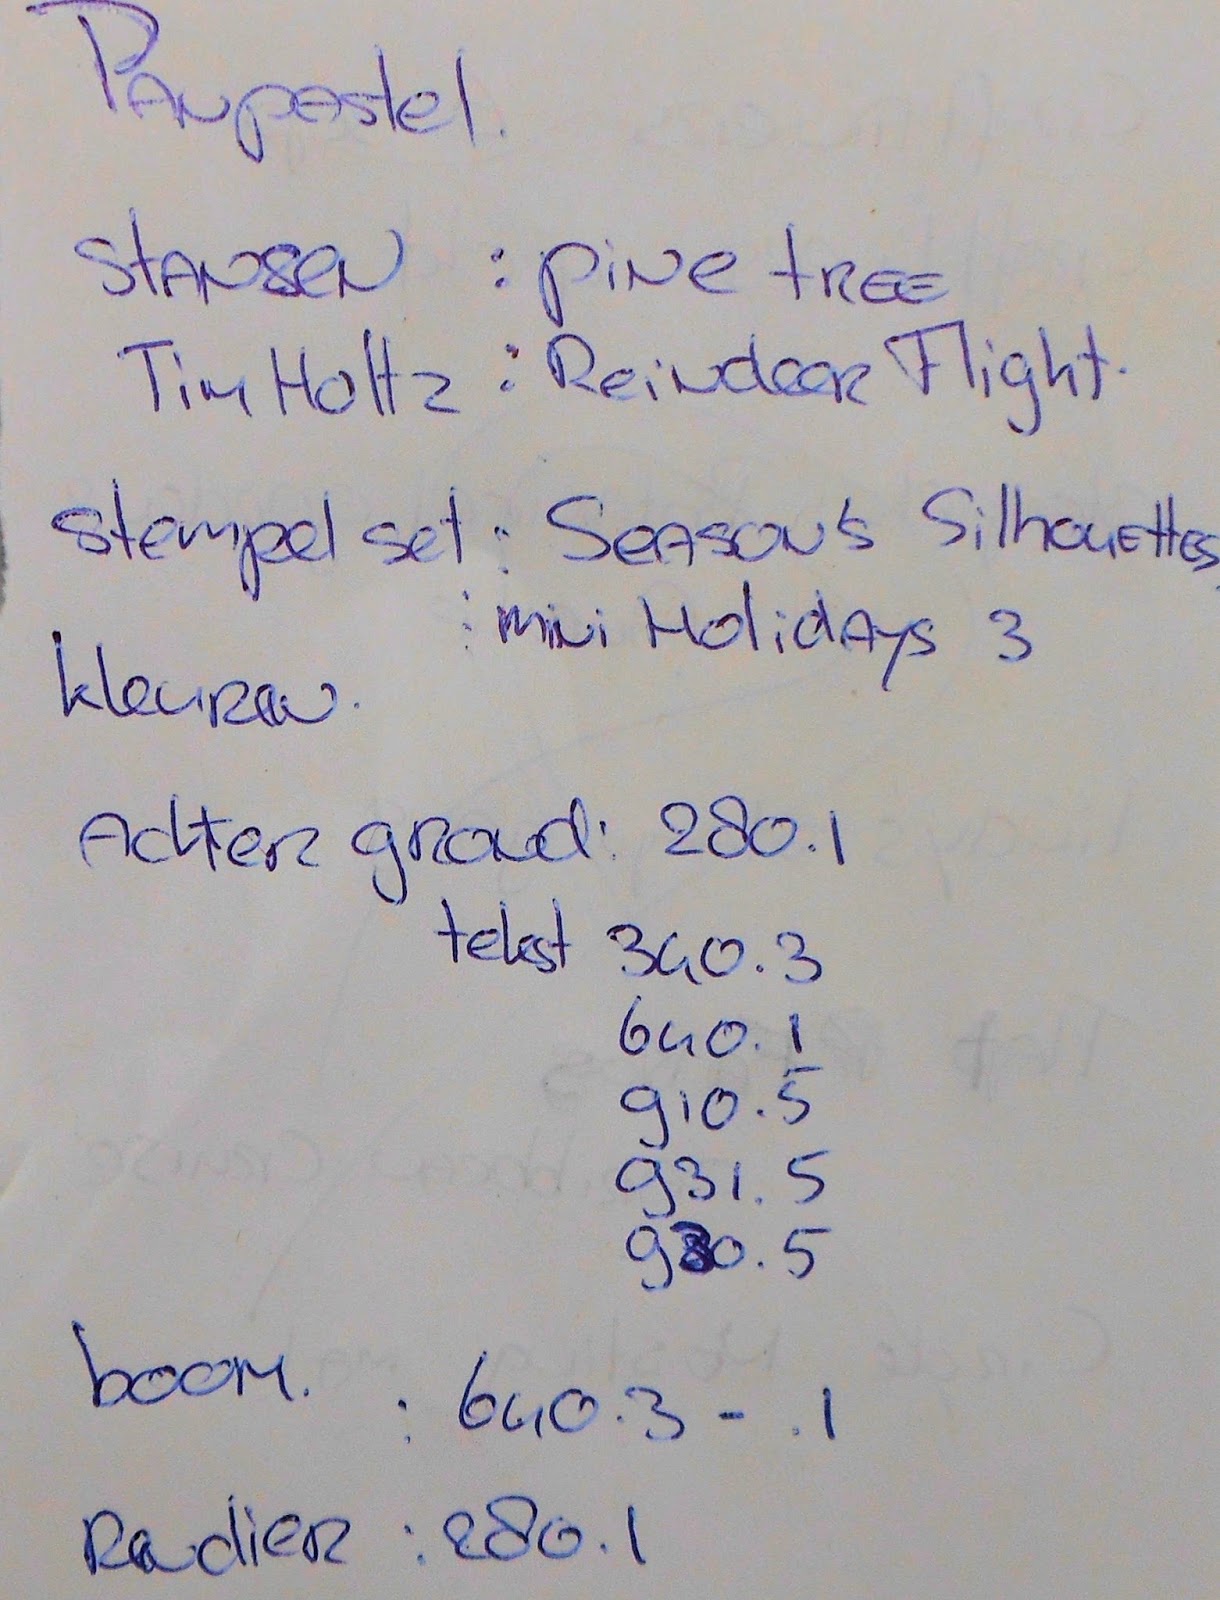 Panpastel.
Stansen : pine tree
Tim Holtz : Reindeer Flight.
Stempel set : Season's Silhouettes
: mini Holidays 3
kleuren.
Achter grond: 280.1
tekst 340.3
640.1
910.5
931.5
930.5
boom. : 640.3 - .1
Rendier : 280.1